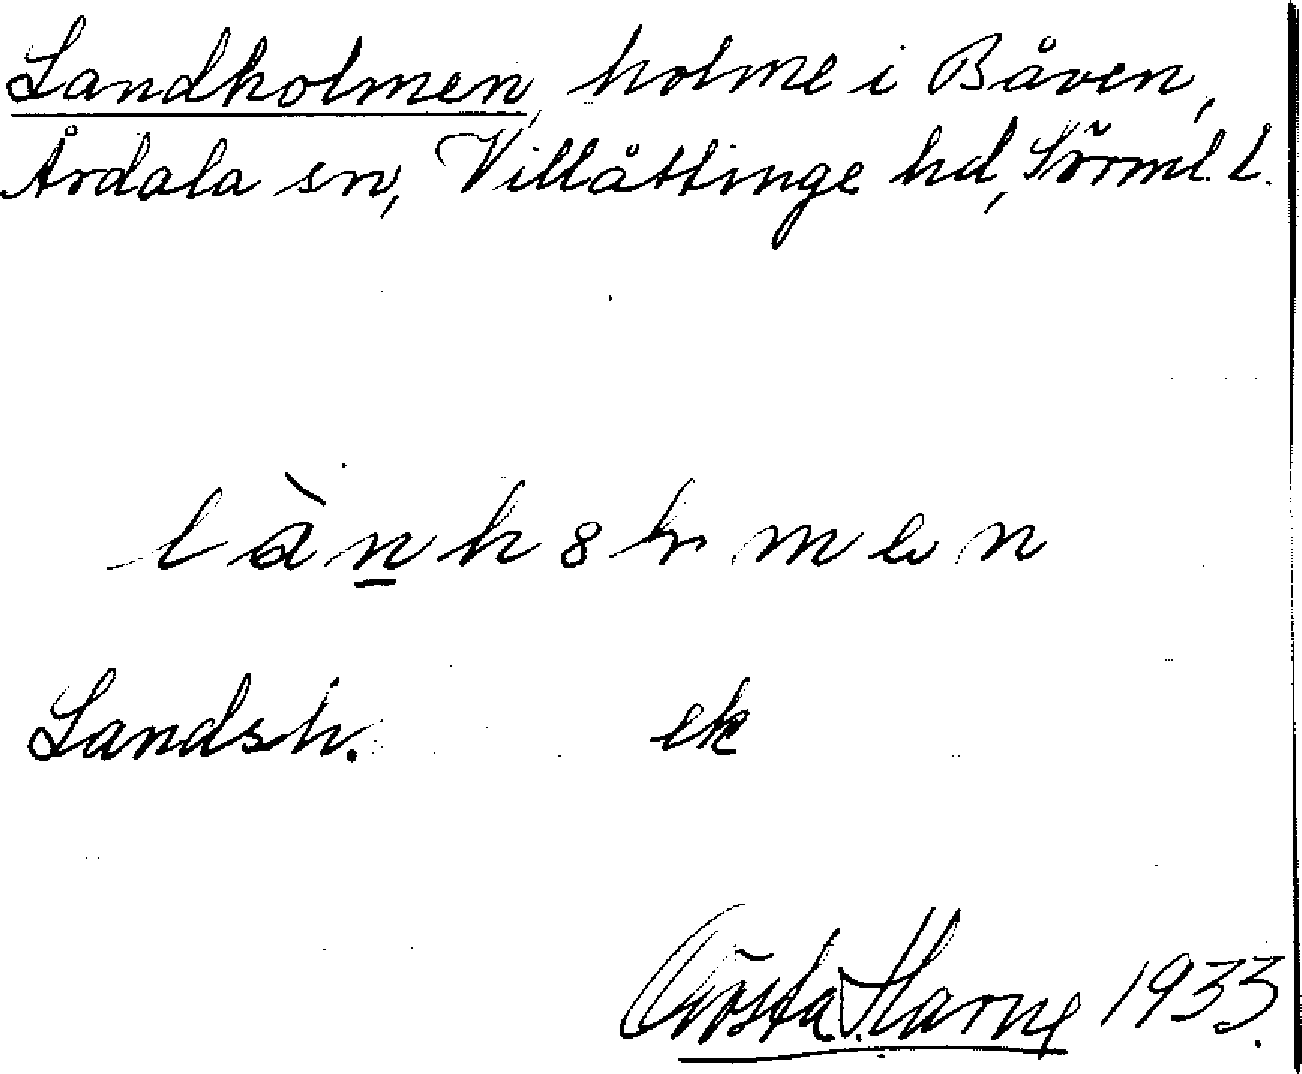 Landholmen, holme i Båven,
Årdala sn, Villåttinge hd, Sörml. l.
lànhålmen
Landsh. ek
Gösta Harne 1933.